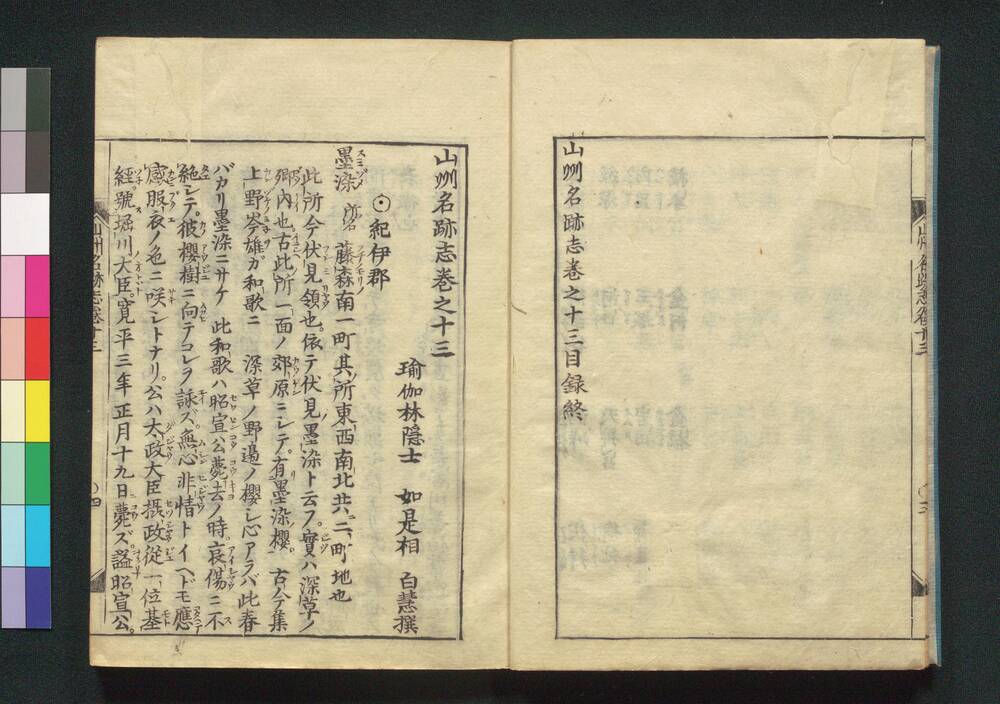 山州名跡志巻之十三目録終
山州名跡志巻之十三
瑜伽林隠士　如是相　白慧撰
⊙紀伊郡
墨染　所名　藤森南一町其所東西南北共二町地也
此所今伏見領也依テ伏見墨染ト云フ。實ハ深草ノ
郷内也古此所一面ノ郊原ニシテ有墨染櫻。古今集
上野岑雄ガ和歌ニ　深草ノ野邉ノ櫻シ心アラバ此春
バカリ墨染ニサケ　此和歌ハ昭宣公薨去ノ時哀傷ニ不
絶シテ彼櫻樹ニ向テコレヲ詠ズ。無心非情トイヘドモ應
感服衣ノ色ニ咲シトナリ。公ハ大政大臣摂政從一位基
經號堀川大臣。寛平三年正月十九日薨ズ。謚昭宣公。
山州名跡志巻十三
〇四
〇三